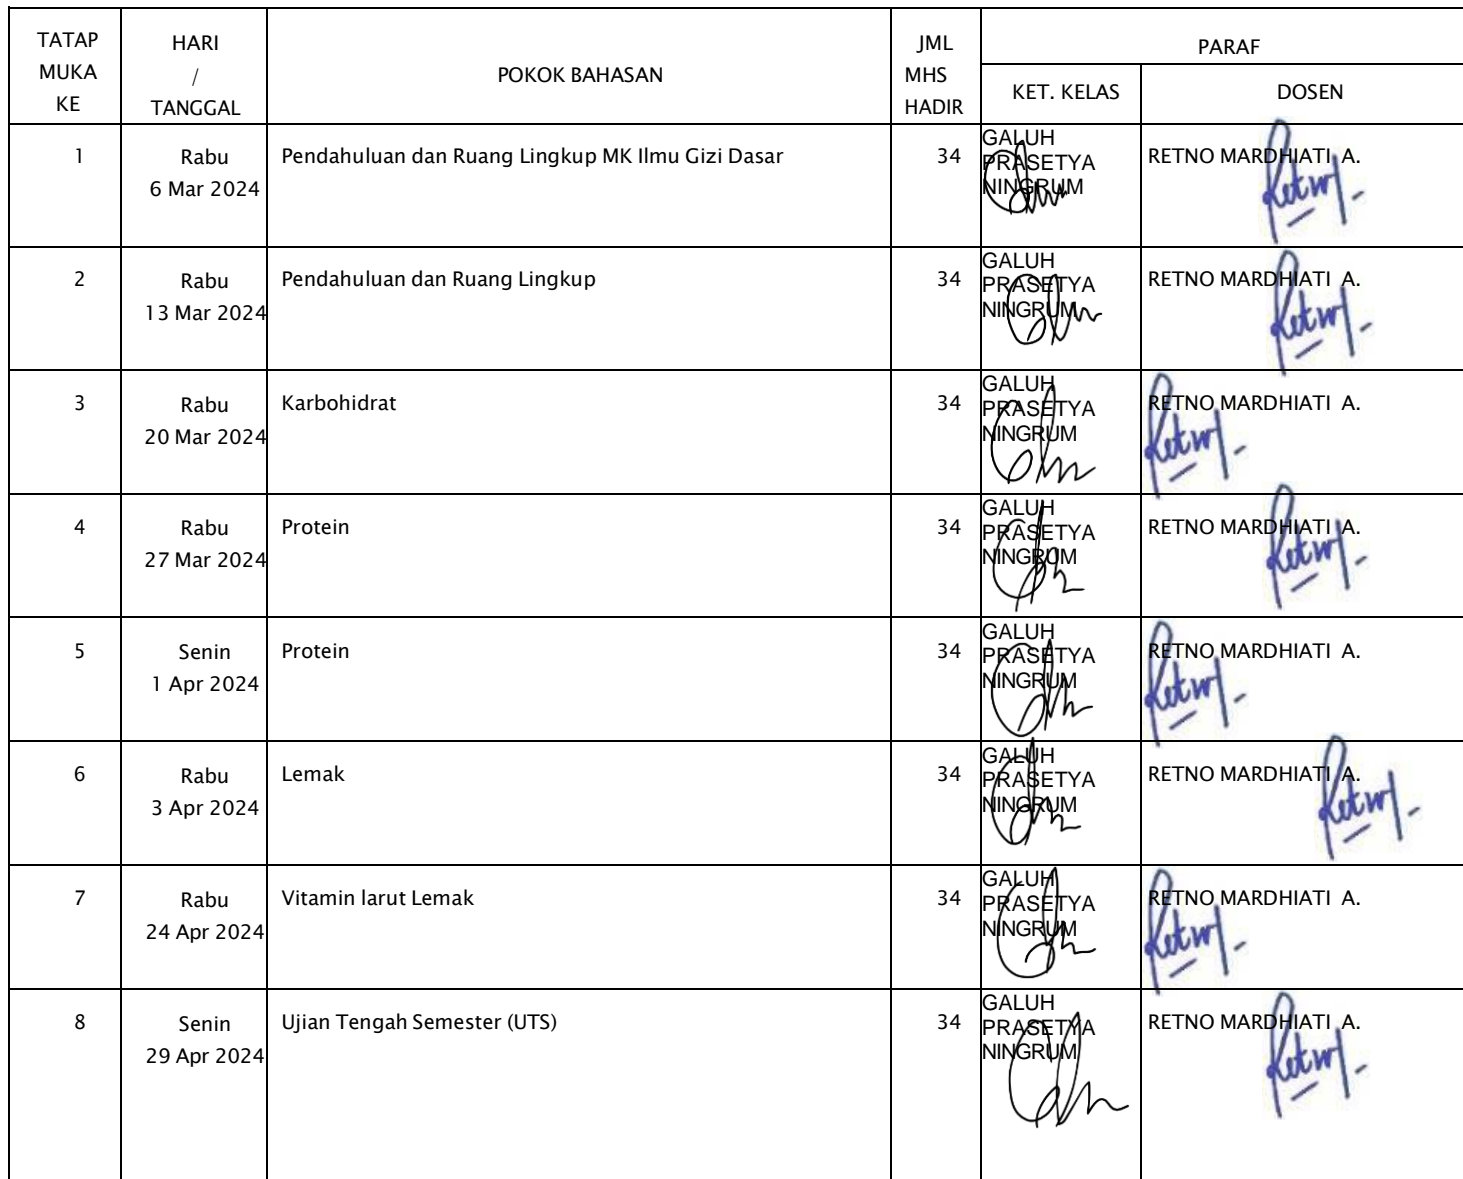 TATAP MUKA KE
HARI / TANGGAL
POKOK BAHASAN
JML MHS HADIR
PARAF
KET. KELAS
DOSEN
1
Rabu
6 Mar 2024
Pendahuluan dan Ruang Lingkup MK Ilmu Gizi Dasar
34
GALUH
PRASETYA
NINGRUM
RETNO MARDHIATI A.
2
Rabu
13 Mar 2024
Pendahuluan dan Ruang Lingkup
34
GALUH
PRASETYA
NINGRUM
RETNO MARDHIATI A.
3
Rabu
20 Mar 2024
Karbohidrat
34
GALUH
PRASETYA
NINGRUM
RETNO MARDHIATI A.
4
Rabu
27 Mar 2024
Protein
34
GALUH
PRASETYA
NINGRUM
RETNO MARDHIATI A.
5
Senin
1 Apr 2024
Protein
34
GALUH
PRASETYA
NINGRUM
RETNO MARDHIATI A.
6
Rabu
3 Apr 2024
Lemak
34
GALUH
PRASETYA
NINGRUM
RETNO MARDHIATI A.
7
Rabu
24 Apr 2024
Vitamin larut Lemak
34
GALUH
PRASETYA
NINGRUM
RETNO MARDHIATI A.
8
Senin
29 Apr 2024
Ujian Tengah Semester (UTS)
34
GALUH
PRASETYA
NINGRUM
RETNO MARDHIATI A.